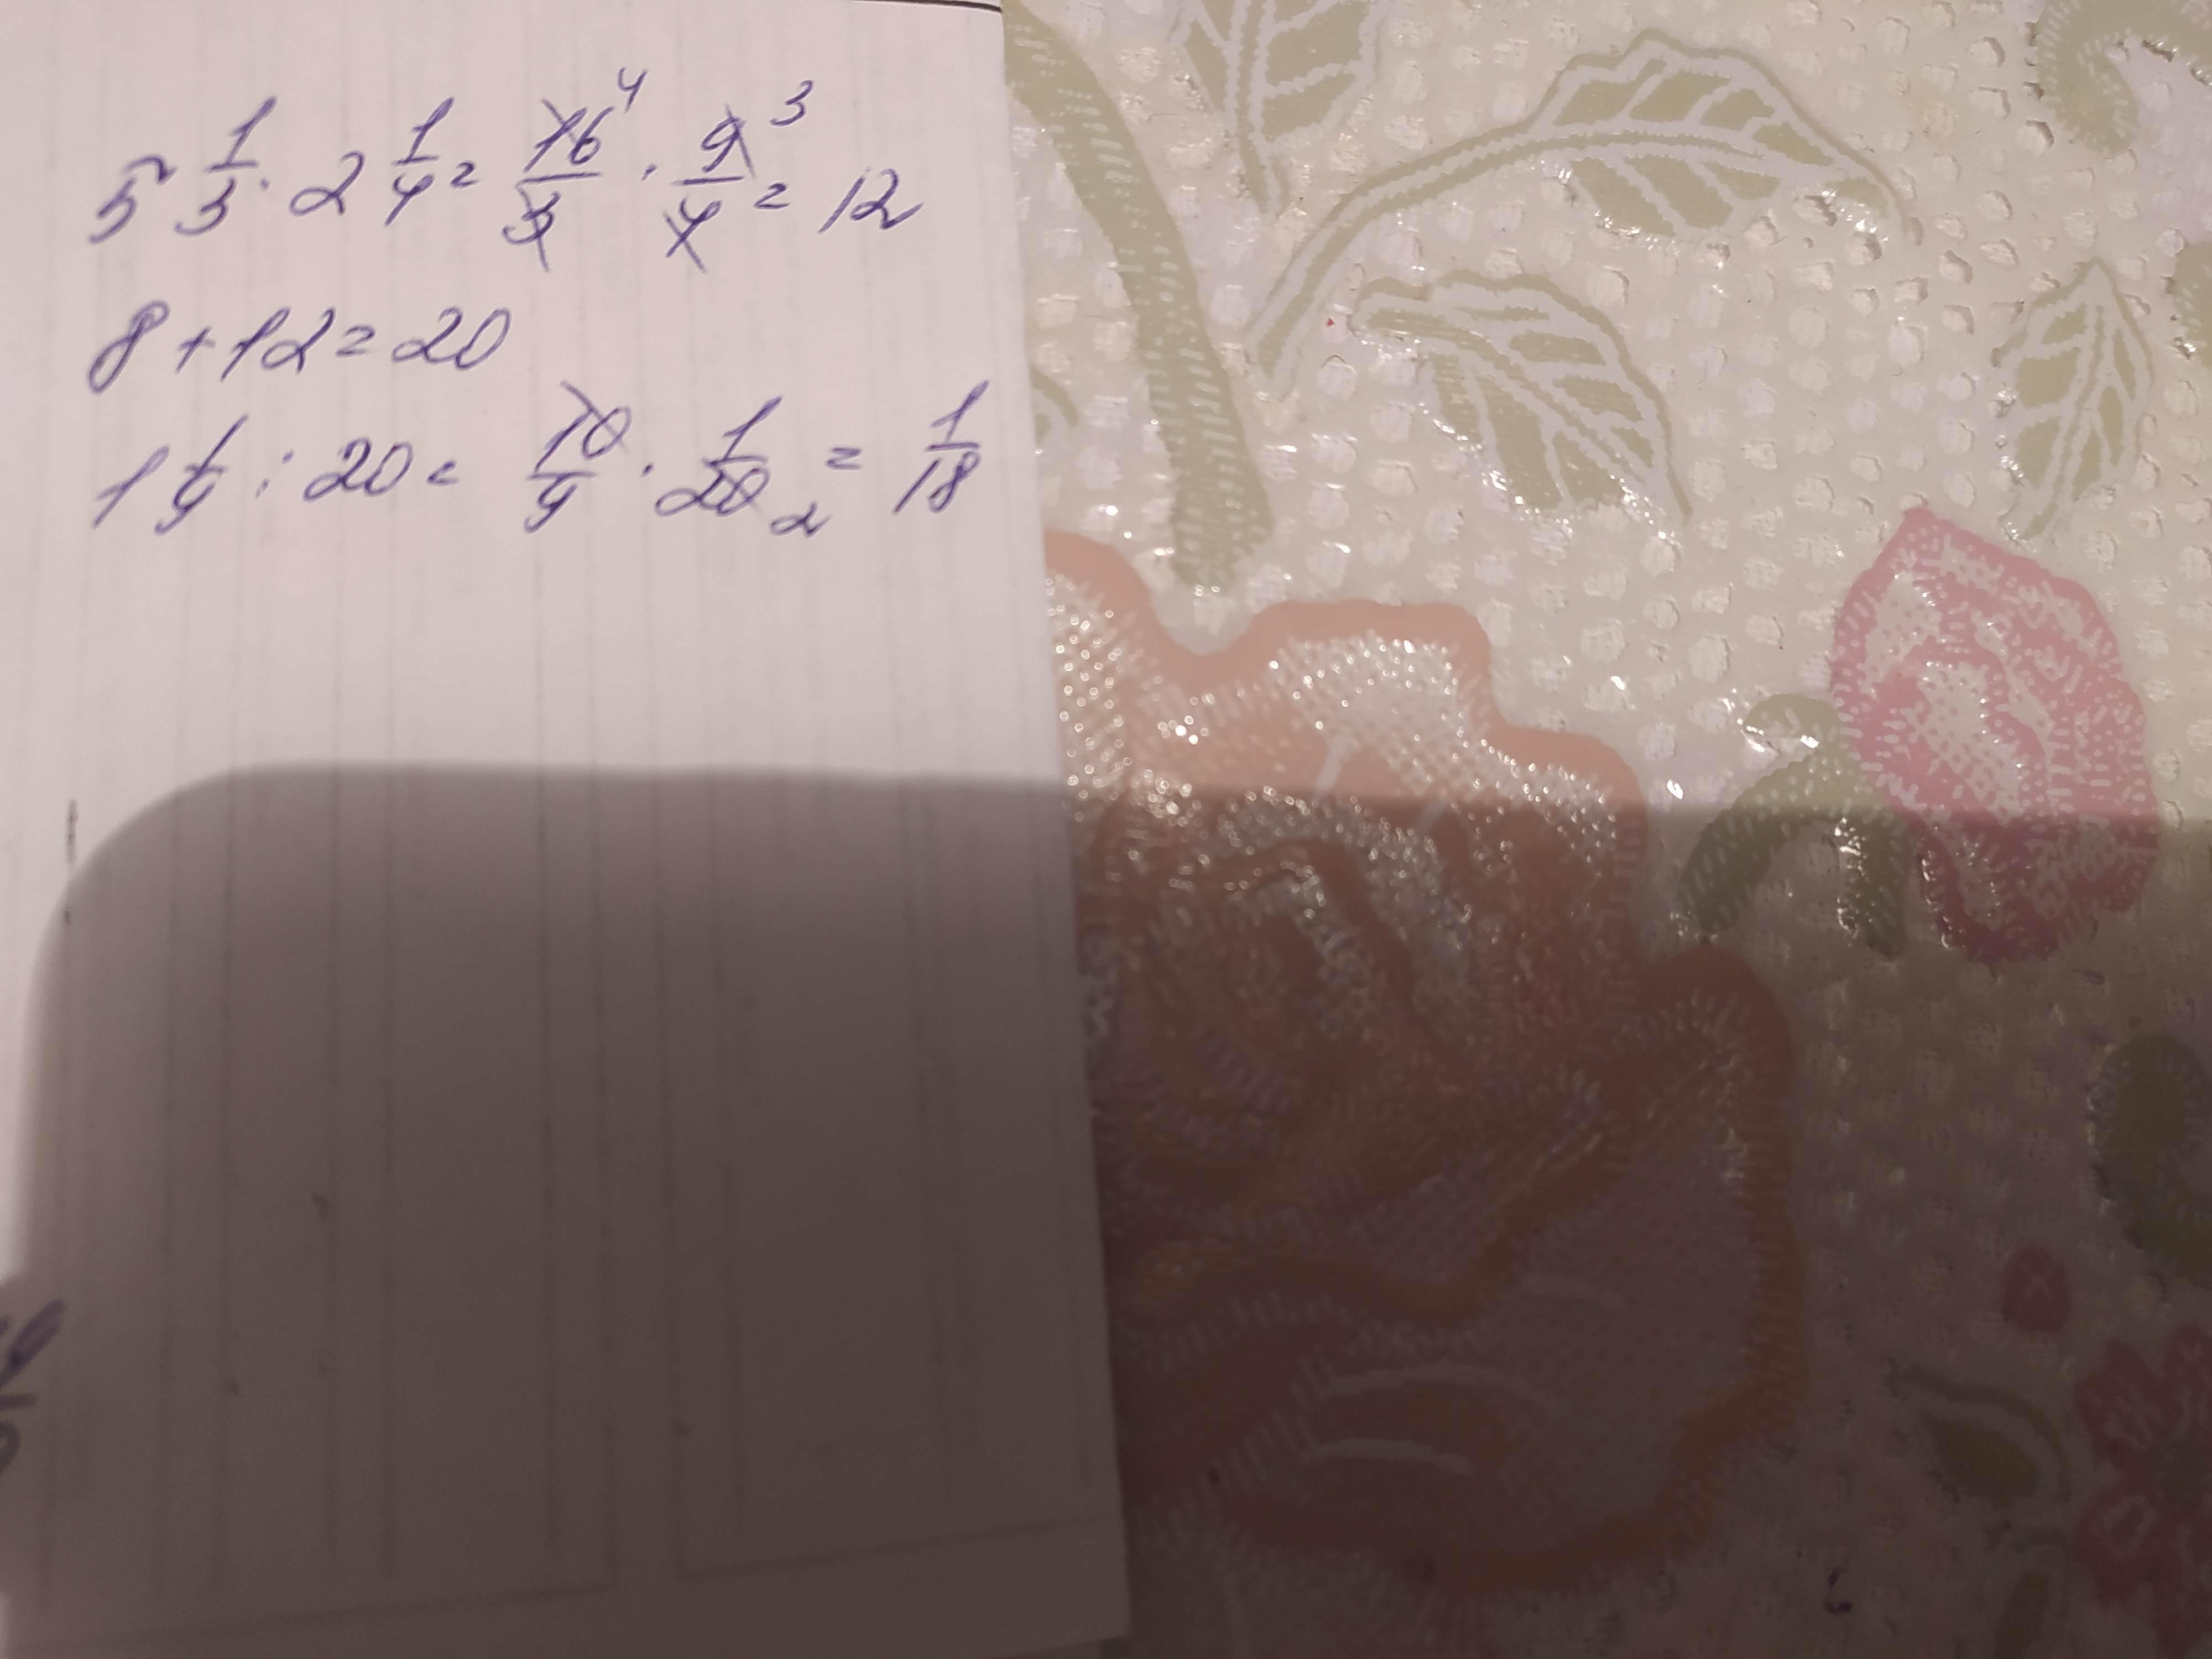 5 1/3 · 2 1/4 = 16/3 4 · 9/4 3 = 12
8 + 12 = 20
1 1/9 : 20 = 10/9 · 1/20 2 = 1/18